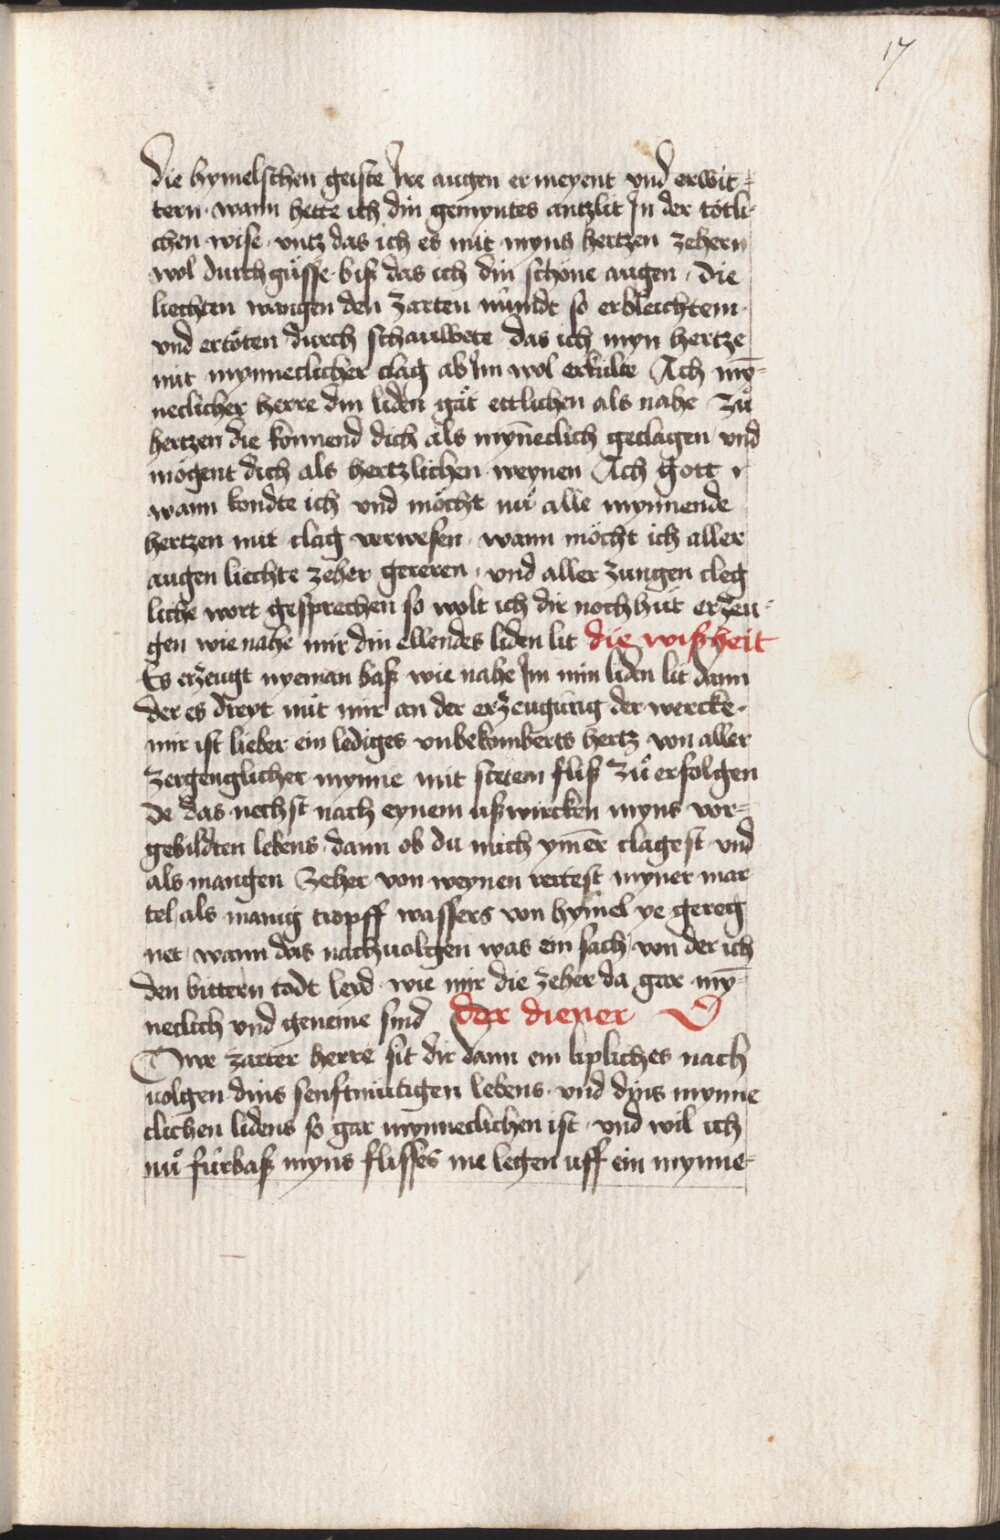 17
die hymelschen geiste Jre augen ermeyent vnd erwit=
tern · wann hette ich din gemyntes antzlit Jn der tötli-
chen wise · vntz das ich es mit myns hertzen zehern
wol durch güsse · biß das ich din schöne augen · die
liechten wangen den zarten mundt so erbleichtem ·
vnd ertöten durch schauwete das ich myn hertze
mit mynneclicher clag ab Jm wol erkulte Ach my̅=
neclicher herre din liden gät ettlichen als nahe zů
hertzen die könnend dich als myn̅eclich geclagen vnd
mögent dich als hertzlichen weynen Ach gott
wann kondte ich vnd möcht nů alle mynnende
hertzen mit clag verwesen · wann möcht ich aller
augen liechte zeher gereren · vnd aller zungen cleg
liche wort gesprechen so wolt ich dir noch hüt erzeu-
gen wie nahe mir din ellendes liden lit die wißheit
Es erzeugt nyeman baß wie nahe Jm min liden lit dann
der es dreyt mit mir an der erzeugung der wercke ·
mir ist lieber ein lediges vnbekumberts hertz von aller
zergenglicher mynne mit stetem fliß zů erfolgen
de das nechst nach eynem ußwircken myns vor=
gebildten lebens · dann ob du mich ym̅er clagest vnd
als mangen zeher von weynen rertest myner mar
tel / als manig tropff wassers von hymel ye gereg
net · wann das nachuolgen was ein sach von der ich
den bittern todt leyd · wie mir die zeher da gar my̅=
neclich vnd geneme sind der diener O
Owe zarter herre sit dir dann ein lipliches nach
uolgen dins senftmütigen lebens · vnd dyns mynne
clichen lidens so gar mynneclichen ist · vnd wil ich
nů fürbaß myns flisses me legen uff ein mynne-